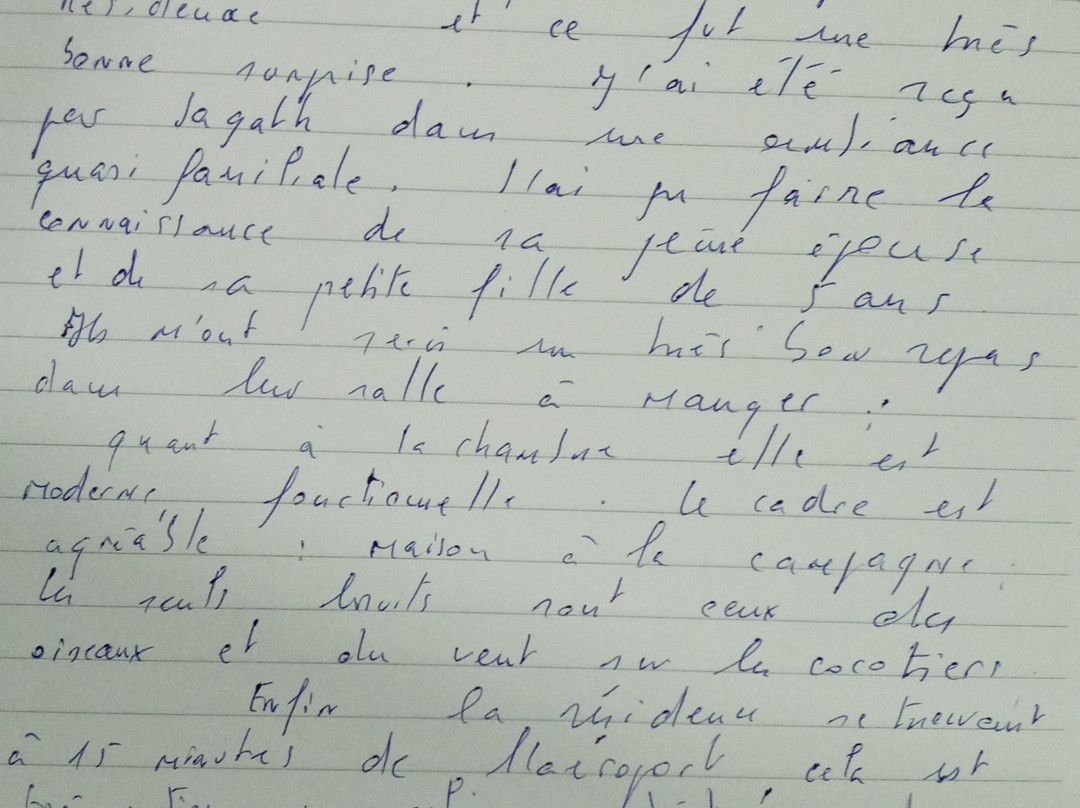 résidence et ce fut une très
bonne surprise. J'ai été reçu
par Jagath dans une ambiance
quasi familiale. J'ai pu faire la
connaissance de sa jeune épouse
et de sa petite fille de 5 ans
Ils m'ont servi un très bon repas
dans leur salle à manger :
quant à la chambre elle est
moderne fonctionnelle. le cadre est
agréable : maison à la campagne.
les seuls bruits sont ceux des
oiseaux et du vent sur les cocotiers
Enfin la résidence se trouvant
à 15 minutes de l'aéroport cela est